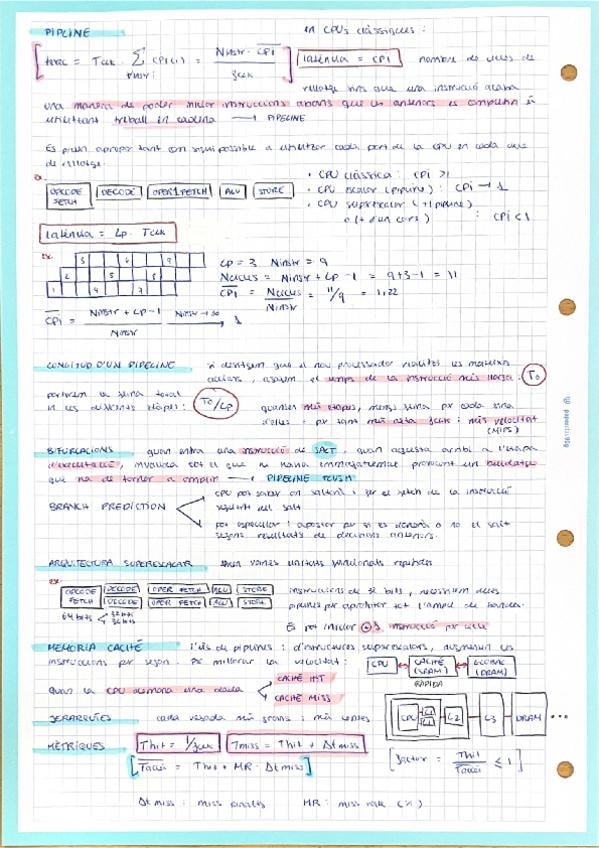 PIPELINE
en CPUs clàssiques :
texec = Tclk · Σ CPI(i) = Ninstr · CPI
instr i fclk
latència = CPI nombre de cicles de
rellotge fins que una instrucció acaba
una manera de poder iniciar instruccions abans que les anteriors es completin és
utilitzant treball en cadena → PIPELINE
Es pretén apropar tant com sigui possible a utilitzar cada part de la CPU en cada cicle
de rellotge.
ex.
OPCODE FETCH DECODE OPER1FETCH ALU STORE
· CPU clàssica : CPI > 1
· CPU escalar (pipeline) : CPI → 1
· CPU superescalar (+1 pipeline)
o (+ d'un core) : CPI < 1
latència = Lp · Tclk
ex.
3 6 9
2 5 8
1 4 7
Lp = 3 Ninstr = 9
Ncicles = Ninstr + Lp - 1 = 9+3-1 = 11
CPI = Ncicles / Ninstr = 11/9 = 1,22
CPI = Ninstr + Lp - 1 / Ninstr Ninstr → ∞ 1
LONGITUD D'UN PIPELINE si desitgem que el nou processador realitzi les mateixes
accions, agafem el temps de la instrucció més llarga. T0
partirem la feina total
en les diferents etapes: T0/Lp
quantes més etapes, menys feina per cada una
d'elles i per tant més alta fclk i més velocitat
(MIPS)
BIFURCACIONS quan entra una instrucció de SALT, quan aquesta arriba a l'etapa
d'execució, invalida tot el que hi havia immediatament provocant un buidatge
que ha de tornar a omplir → PIPELINE FLUSH
BRANCH PREDICTION
CPU pot saber on saltarà i fer el fetch de la instrucció
següent del salt
pot especular i apostar per si es donarà o no el salt
segons resultats de decisions anteriors.
ARQUITECTURA SUPERESCALAR tenir vàries unitats funcionals repetides
ex.
OPCODE FETCH DECODE OPER FETCH ALU STORE
DECODE OPER FETCH ALU STORE
64 bits 32 bits
32 bits
instruccions de 32 bits, necessitem dues
pipelines per aprofitar tot l'ample de banda.
Es pot iniciar +1 instrucció per cicle
MEMORIA CACHÉ l'ús de pipelines i d'estructures superescalars, augmenten les
instruccions per segon. Per millorar la velocitat:
CPU CACHÉ (SRAM) GLOBAL (DRAM)
RÀPIDA
Quan la CPU demana una dada
CACHÉ HIT
CACHÉ MISS
JERARQUIES cada vegada més grans i més lentes
CPU L1 L1 L2 L3 DRAM ...
MÈTRIQUES Thit = 1/fclk Tmiss = Thit + Δtmiss
Taccés = Thit + MR · Δtmiss
factor = Thit / Taccés ≤ 1
Δtmiss : miss penalty MR : miss rate (%)